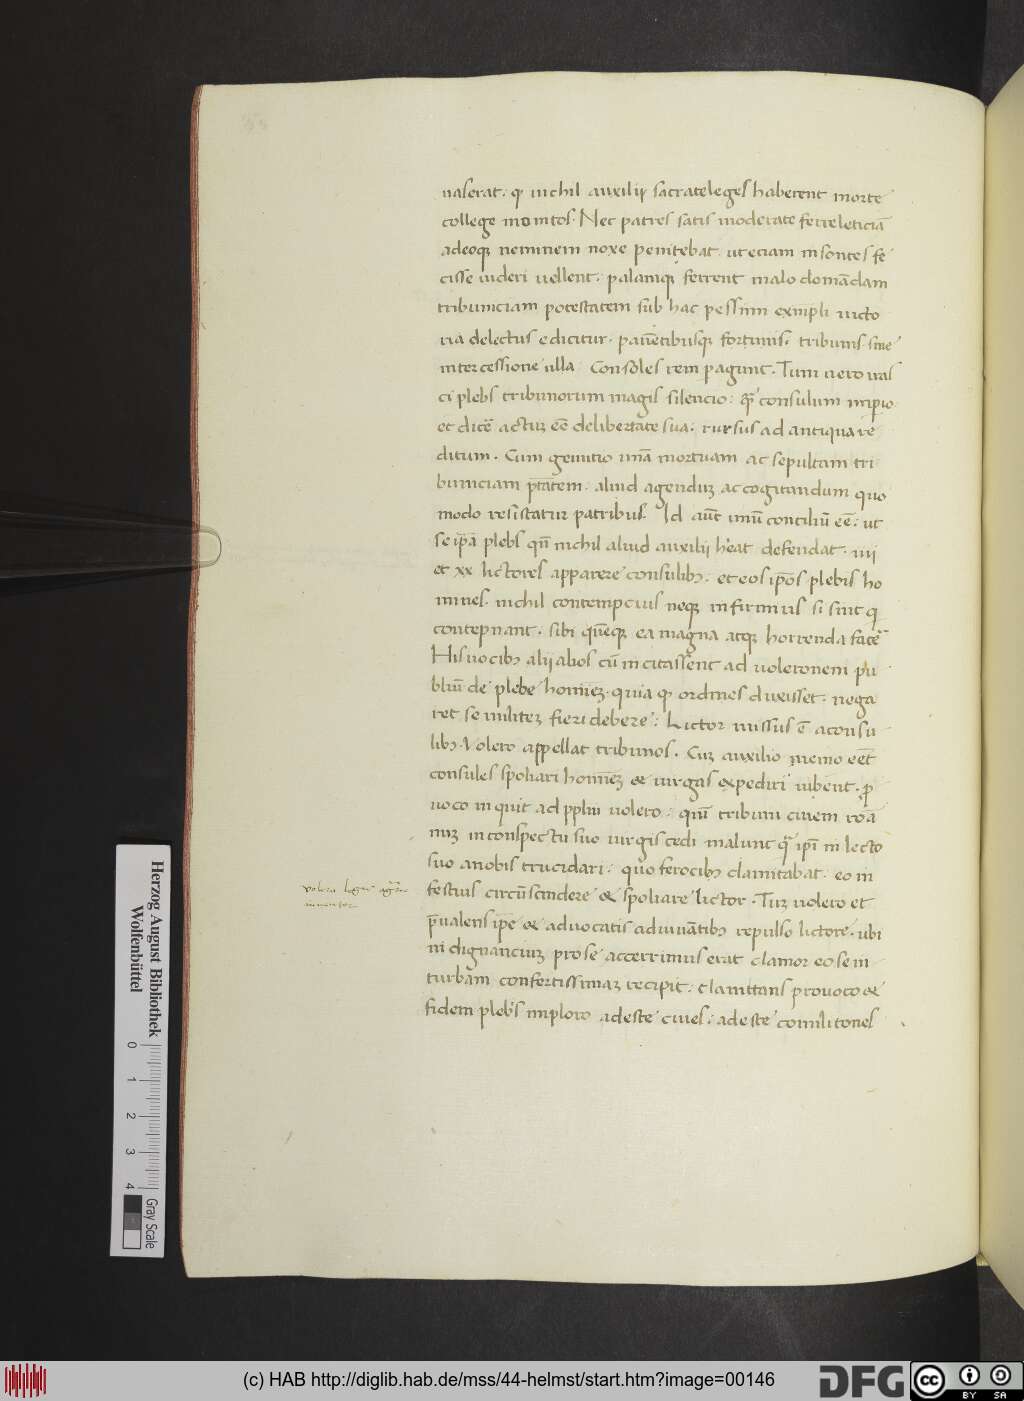 naserat. qͥ nichil auxilij sacrateleges haberent morte
college monitos. Nec patres satis moderate ferre leticiā
adeoqꝫ neminem noxe penitebat. ut eciam insontes fe
cisse uideri uellent. palamqꝫ ferrent malo domādam
tribuniciam potestatem sub hac pessimi exmpli uicto
ria delectus edicitur. pauētibusqꝫ fortunis. tribunis sine
intercessione ulla Consoles rem pagunt. Tum uero iras
ci plebs tribunorum magis silencio: qͣꝫ consulum imperio
et dicē actuꝫ eē delibertate sua. rursus ad antiqua re
ditum. Cum genutio unā mortuam ac sepultam tri
buniciam ptātem. aliud agenduꝫ ac cogitandum quo
modo resistatur patribus. Id aūt unū conciliū eē: ut
se ip̄a plebs qn̄ nichil aliud auxilij h'eat defendat. iiij
et xx lictores apparere consulibꝫ. et eos ip̄os plebis ho
mines. nichil contempcius neqꝫ infirmius si sint qͥ
contepnant. sibi quēqꝫ ea magna atqꝫ horrenda facē
His uocibꝫ alij alios cū incitassent ad uoleronem pu
bliū de plebe homineꝫ. quia qͥ ordines duxisset. nega
ret se militeꝫ fieri debere: Lictor missus ē aconsu
libꝫ. Volero appellat tribunos. Cuꝫ auxilio nemo eēt
consules spoliari homineꝫ & uirgas expediri iubent. p̱ro
uoco inquit ad pplm uolero: qm̄ tribuni ciuem roā
nuꝫ in conspectu suo uirgis cedi malunt qͣꝫ ip̄i in lecto
suo auobis trucidari: quo ferocibꝫ clamitabat. eo in
festius circūscindere & spoliare lictor. Tuꝫ uolero et
volero legis agrar
inuentor
p̄ualens ip̄e & aduocatis adiuuātibꝫ repulso lictore. ubi
indignanciuꝫ prose accerrimus erat clamor eo se in
turbam confertissimaꝫ recipit: clamitans prouoco &
fidem plebis imploro adeste ciues: adeste comilitones
Herzog August Bibliothek
Wolfenbüttel
0 1 2 3 4
Gray Scale
(c) HAB http://diglib.hab.de/mss/44-helmst/start.htm?image=00146
DFG
cc BY SA